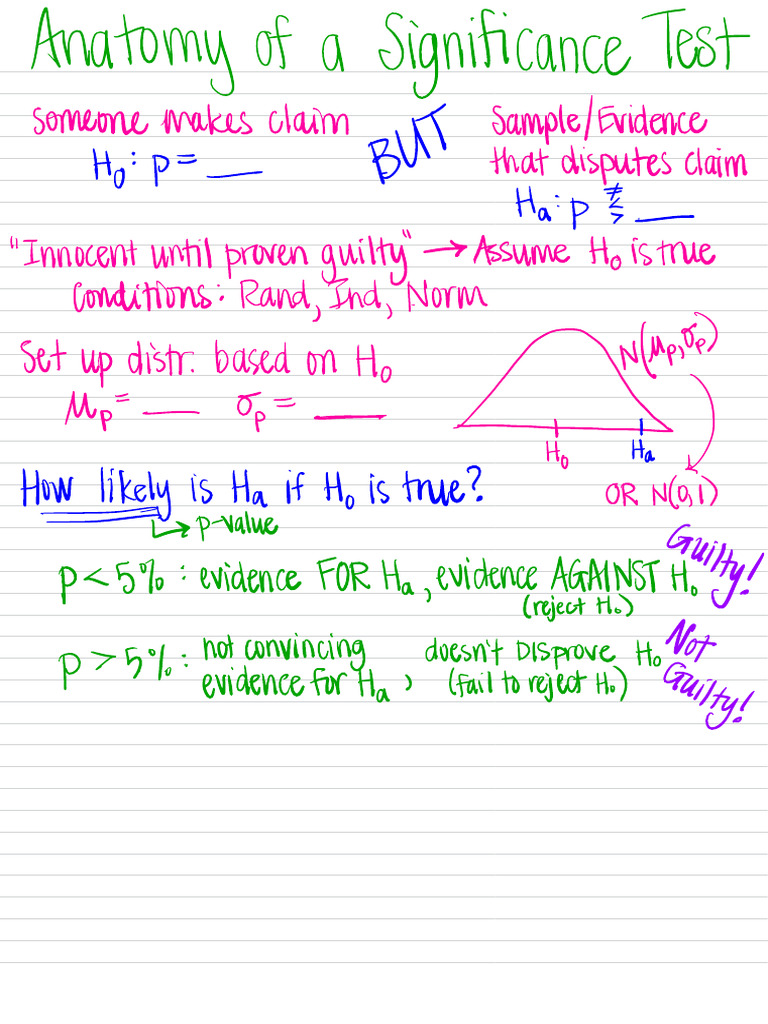 Anatomy of a Significance Test
Someone makes claim
H₀: p = __
BUT
Sample/Evidence
that disputes claim
Hₐ: p ≠ < > __
"Innocent until proven guilty" → Assume H₀ is true
Conditions: Rand, Ind, Norm
Set up distr. based on H₀
μₚ = __ σₚ = __
N(μₚ, σₚ)
H₀ Hₐ
OR N(0,1)
How likely is Hₐ if H₀ is true?
↳ p-value
p < 5% : evidence FOR Hₐ, evidence AGAINST H₀
(reject H₀)
Guilty!
p > 5% : not convincing
evidence for Hₐ,
doesn't DISprove H₀
(fail to reject H₀)
Not
Guilty!